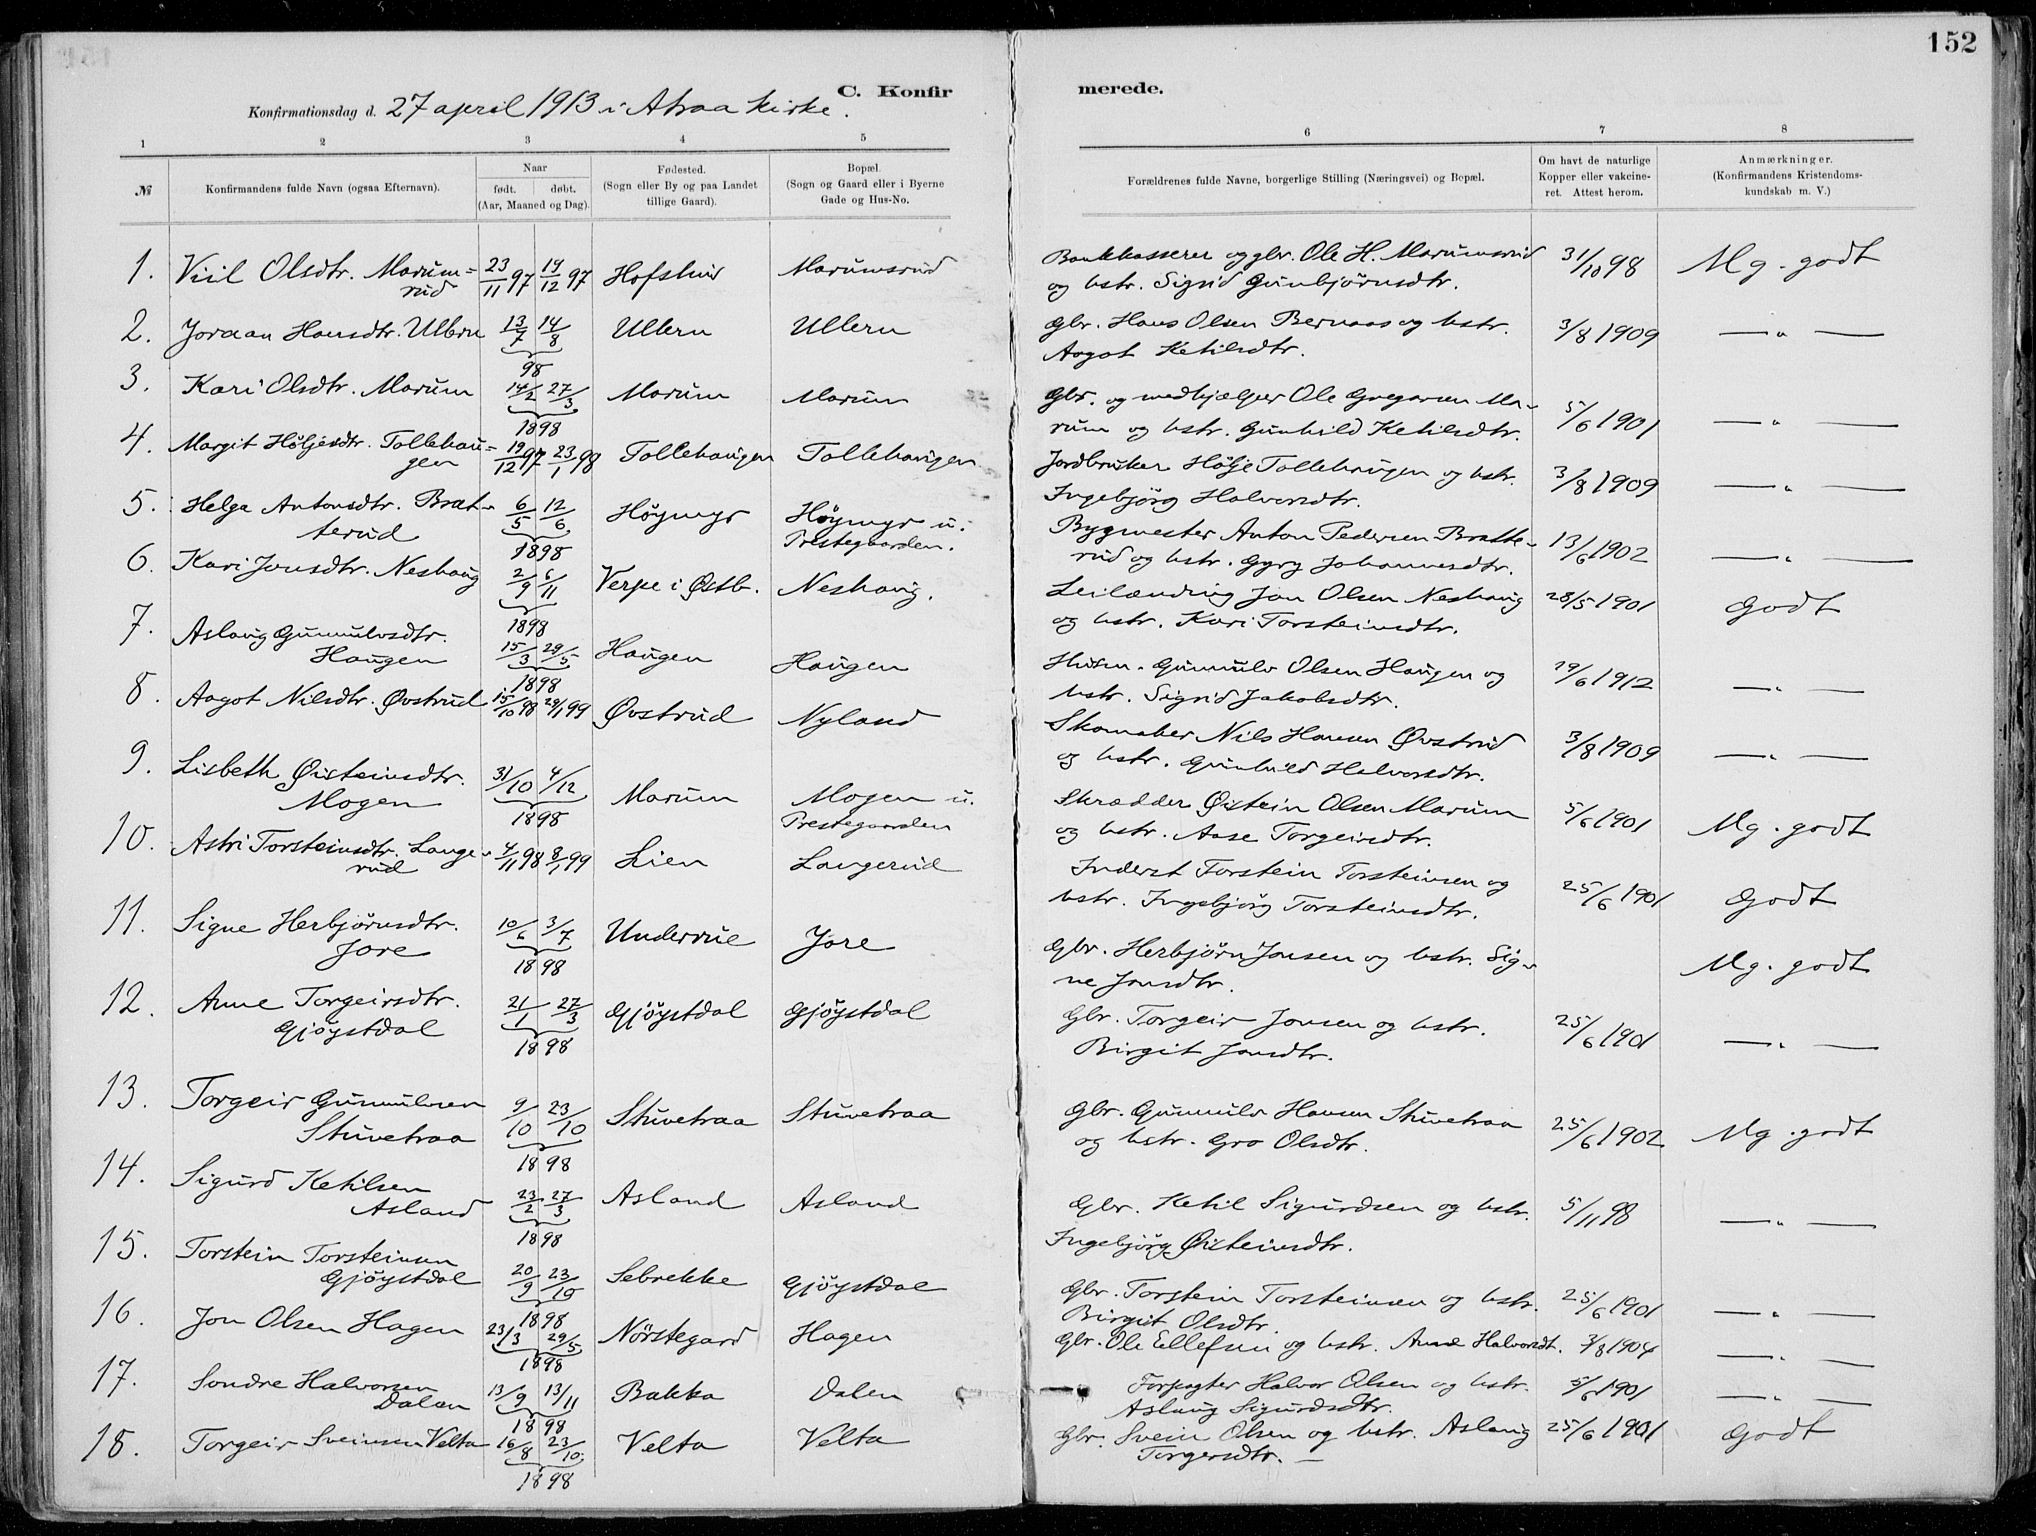 152
C. Konfirmerede.
Konfirmationsdag d. 27 april 1913 i Atraa kirke.
1 2 3 4 5 6 7 8
№ Konfirmandens fulde Navn (ogsaa Efternavn). Naar født. døbt. (Aar, Maaned og Dag). Fødested. (Sogn eller By og paa Landet tillige Gaard). Bopæl. (Sogn og Gaard eller i Byerne Gade og Hus-No. Forældrenes fulde Navne, borgerlige Stilling (Næringsvei) og Bopæl. Om havt de naturlige Kopper eller vakcineret. Attest herom. Anmærkninger. (Konfirmandens Kristendomskundskab m. V.)
1. Viil Olsdtr. Marum= 23/11 97 19/12 97 Marumsrud Bankkasserer og gbr. Ole H. Marumsrud 31/10 98 Mg. godt
rud og hstr. Sigrid Gunbjørnsdtr.
2. Joraan Hansdtr. Ullern 13/7 14/8 Ullern Ullern Gbr. Hans Olsen Bernaas og hstr. 3/8 1909 — " —
98 Aagot Ketilsdtr.
3. Kari Olsdtr. Marum 14/2 27/3 Marum Marum Gbr. og medhjælper Ole Gregarsen Ma- 5/6 1901 — " —
1898 rum og hstr. Gunhild Ketilsdtr.
4. Margit Høljesdtr. Tollehau= 19/12 97 23/1 98 Tollehaugen Tollehaugen Jordbruker Hølje Tollehaugen og hstr. 3/8 1909 — " —
gen Ingebjörg Halvorsdtr.
5. Helga Antonsdtr. Brat- 6/5 12/6 Høymyr Høymyr u. Bygmester Anton Pedersen Bratte- 13/6 1902 — " —
terud 1898 Prestegaarden. rud og hstr. Gyry Johannesdtr.
6. Kari Jonsdtr. Neshaug 2/9 6/11 Verpe i Østb. Neshaug. Leilænding Jon Olsen Neshaug 28/5 1901 Godt
1898 og hstr. Kari Torsteinsdtr.
7. Aslaug Gunnulvsdtr. 15/3 29/5 Haugen Haugen Husm. Gunnulv Olsen Haugen og 29/6 1912 — " —
Haugen 1898 hstr. Sigrid Jakobsdtr.
8. Aagot Nilsdtr. Øvstrud 15/10 98 29/1 99 Øvstrud Nyland Skomaker Nils Hansen Øvstrud 3/8 1909 — " —
og hstr. Gunhild Halvorsdtr.
9. Lisbeth Øisteinsdtr. 31/10 4/12 Marum Mogen u. Skrædder Øistein Olsen Marum 5/6 1901 Mg. godt
Mogen 1898 Prestegaarden og hstr. Aase Torgeirsdtr.
10. Astri Torsteinsdtr. Lange- 4/11 98 8/1 99 Lien Langerud Inderst Torstein Torsteinsen og 25/6 1901 Godt
rud hstr. Ingebjörg Torsteinsdtr.
11. Signe Herbjørnsdtr. 10/6 3/7 Underrue Jore Gbr. Herbjørn Jonsen og hstr. Sig- Mg. godt
Jore 1898 ne Jonsdtr.
12. Anne Torgeirsdtr. 21/1 27/3 Gjöystdal Gjöystdal Gbr. Torgeir Jonsen og hstr. 25/6 1901 — " —
Gjöystdal 1898 Birgit Jonsdtr.
13. Torgeir Gunnulvsen 9/10 23/10 Stuvetraa Stuvetraa Gbr. Gunnulv Hansen Stuvetraa 25/6 1902 Mg. godt
Stuvetraa 1898 og hstr. Gro Olsdtr.
14. Sigurd Ketilsen 23/2 27/3 Asland Asland Gbr. Ketil Sigurdsen og hstr. 5/11 98 — " —
Asland 1898 Ingebjörg Øisteinsdtr.
15. Torstein Torsteinsen 20/9 23/10 Sebrekke Gjöystdal Gbr. Torstein Torsteinsen og hstr. 25/6 1901 — " —
Gjöystdal 1898 Birgit Olsdtr.
16. Jon Olsen Hagen 23/3 29/5 Nörstegard Hagen Gbr. Ole Ellefsen og hstr. Anne Halvorsdt. 3/8 1904 — " —
1898
17. Sondre Halvorsen 13/9 13/11 Bakka Dalen Forpagter Halvor Olsen og hstr. 5/6 1901 — " —
Dalen 1898 Aslaug Sigurdsdtr.
18. Torgeir Sveinsen Velta 16/8 23/10 Velta Velta Gbr. Svein Olsen og hstr. Aslaug 25/6 1901 Godt
1898 Torgersdtr. —